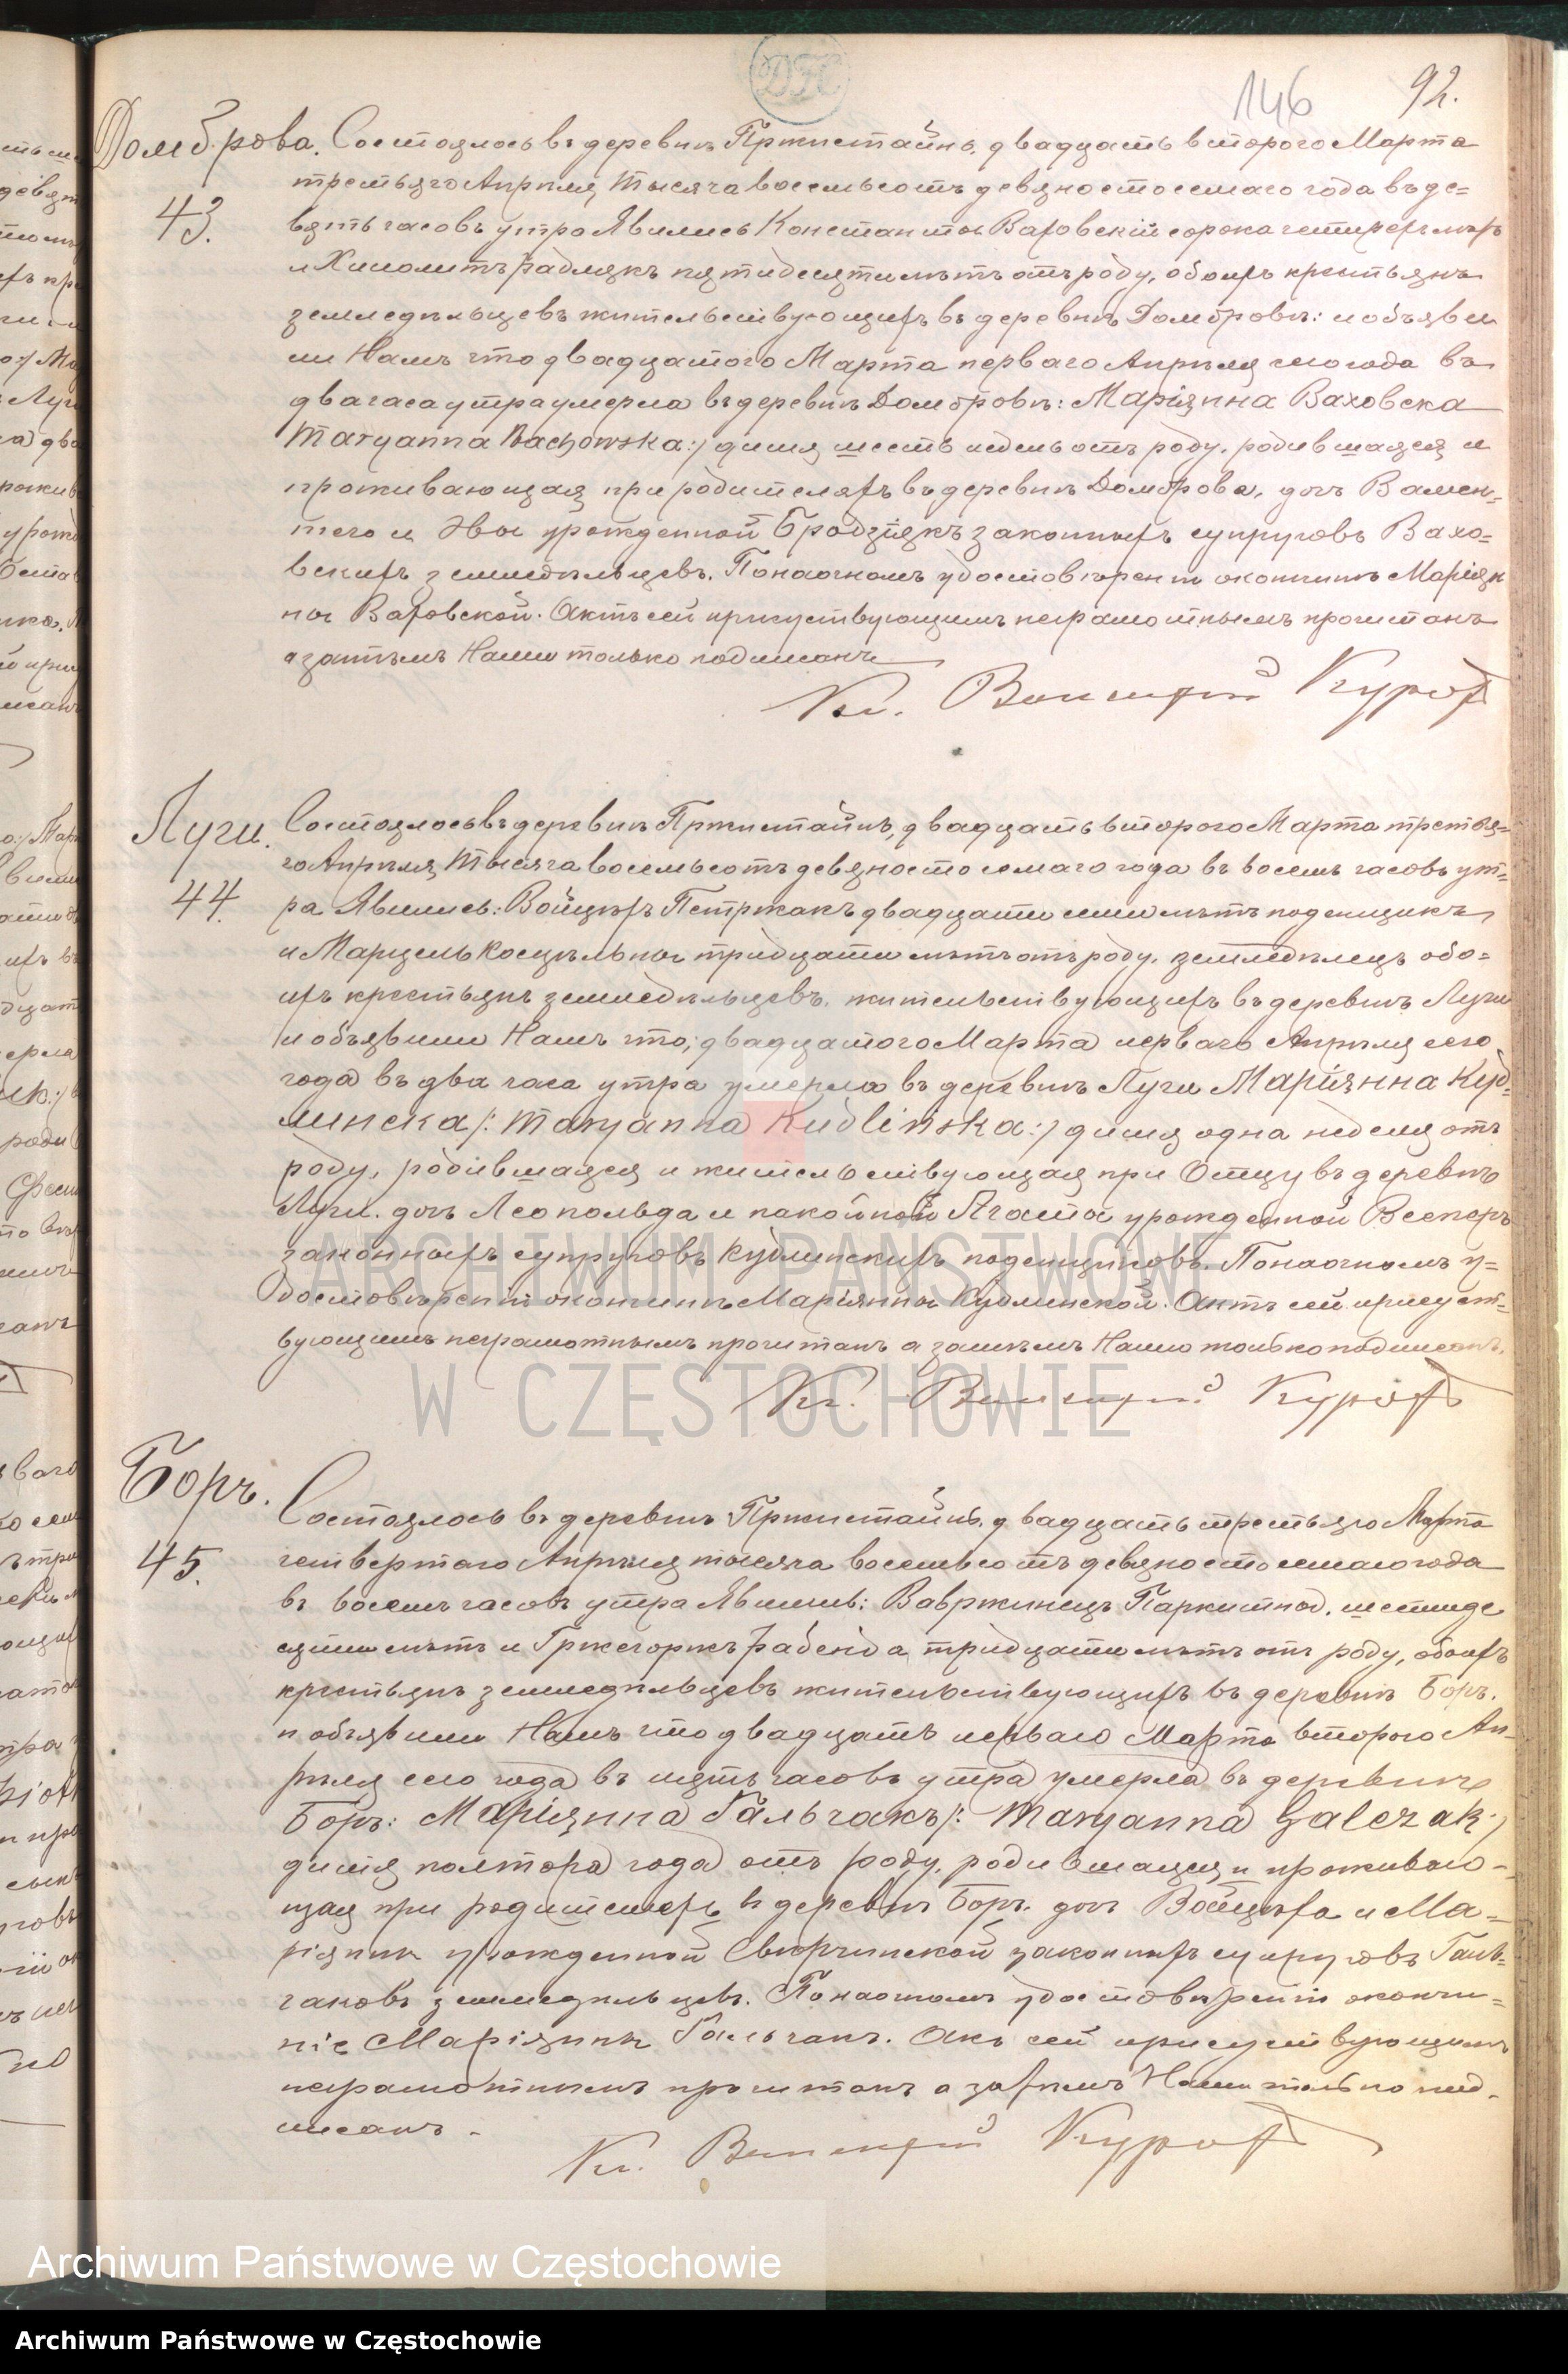 146 92.
Домброва. Состоялось въ деревнѣ Пржистайнь, двадцать второго Марта
43. третьяго Апрѣля тысяча восемьсотъ девяносто семаго года въ де=
вять часовъ утра Явились Константы Ваховскій сорока четырехъ лѣтъ
и Хиполитъ Радлякъ пятидесяти лѣтъ отъ роду, обоихъ крестьянъ
земледѣльцевъ жительствующихъ въ деревнѣ Домбровѣ: и объяви
ли Намъ что двадцатого Марта перваго Апрѣля сего года въ
два часа утра умерла въ деревнѣ Домбровѣ: Маріянна Ваховска
Maryanna Wachowska:/ дитя шесть недель отъ роду, родившаяся и
проживающая при родителяхъ въ деревнѣ Домброва, дочь Вален-
тего и Эвы урожденной Бродзіякъ законныхъ супруговъ Вахо=
вскихъ земледѣльцевъ. Понаочномъ удостовѣреніи окончинѣ Маріян
ны Ваховской. Актъ сей присутствующимъ неграмотнымъ прочитанъ
а затѣмъ Нами только подписанъ
Кс. Винцентій Курой
Луги. Состоялось въ деревнѣ Пржистайнь, двадцать второго Марта третья=
го Апрѣля тысяча восемьсотъ девяносто семаго года въ восемь часовъ ут=
44. ра Явились: Войцѣхъ Петржакъ двадцати семи лѣтъ поденщикъ
и Марцель Косцѣльны тридцати лѣтъ отъ роду, земледѣлецъ обо=
ихъ крестьянъ земледѣльцевъ, жительствующихъ въ деревнѣ Луги
и объявили Намъ что, двадцатого Марта перваго Апрѣля сего
года въ два часа утра умерла въ деревнѣ Луги Маріянна Куд=
линска /: Maryanna Kudlińska:/ дитя одна неделя отъ
роду, родившаяся и жительствующая при Отцу въ деревнѣ
Луги. дочь Леопольда и покойной Агаты урожденной Весперъ
законныхъ супруговъ Кудлинскихъ поденщиковъ. Понаочномъ у=
достовѣреніи окончинѣ Маріянны Кудлинской. Актъ сей присутст=
вующимъ неграмотнымъ прочитанъ а затѣмъ Нами только подписанъ.
Кс. Винцентій Курой
Боръ. Состоялось въ деревнѣ Пржистайнь, двадцать третьяго Марта
45. четвертого Апрѣля тысяча восемьсотъ девяносто семаго года
въ восемь часовъ утра Явились: Вавржинецъ Паркитный, шестиде
сяти лѣтъ и Гржегоржъ Рабенда тридцати лѣтъ отъ роду, обоихъ
крестьянъ земледѣльцевъ жительствующихъ въ деревнѣ Боръ.
и объявили Намъ что двадцать перваго Марта второго Ап-
рѣля сего года въ пять часовъ утра умерла въ деревнѣ
Боръ: Маріянна Гальчакъ /: Maryanna Galczak:/
дитя полтора года отъ роду, родившаяся и проживаю-
щая при родителяхъ въ деревнѣ Боръ. дочь Войцѣха и Ма=
ріянны урожденной законныхъ супруговъ Галь=
чаковъ земледѣльцевъ. Понаочномъ удостовѣреніи окончи=
ніе Маріянны Гальчакъ. Акъ сей присутствующимъ
неграмотнымъ прочитанъ а затѣмъ Нами только под-
писанъ.
Кс. Винцентій Курой
ARCHIWUM PAŃSTWOWE
W CZĘSTOCHOWIE
Archiwum Państwowe w Częstochowie
Archiwum Państwowe w Częstochowie